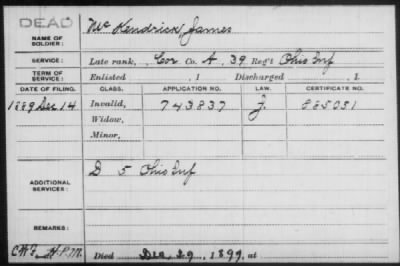 DEAD
NAME OF SOLDIER: McKendrick, James
SERVICE: Late rank, Cor Co. A, 39 Reg't Ohio Inf
TERM OF SERVICE: Enlisted , 1 Discharged , 1
DATE OF FILING. CLASS. APPLICATION NO. LAW. CERTIFICATE NO.
1889 Dec 14 Invalid, 743837 J. 885051
Widow,
Minor,
ADDITIONAL SERVICES: D 5 Ohio Inf
REMARKS:
Died Dec 29, 1899, at